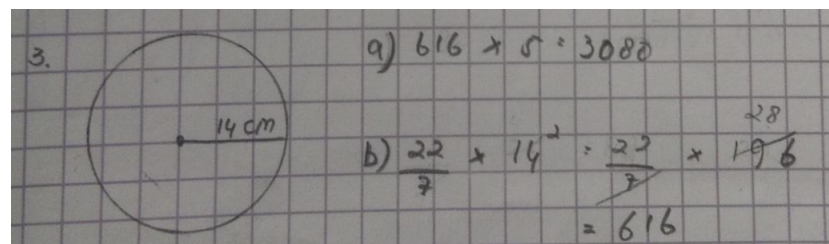 3.
14 cm
a) 616 × 5 = 3080
b) 22/7 × 14² = 22/7 × 196
28
= 616